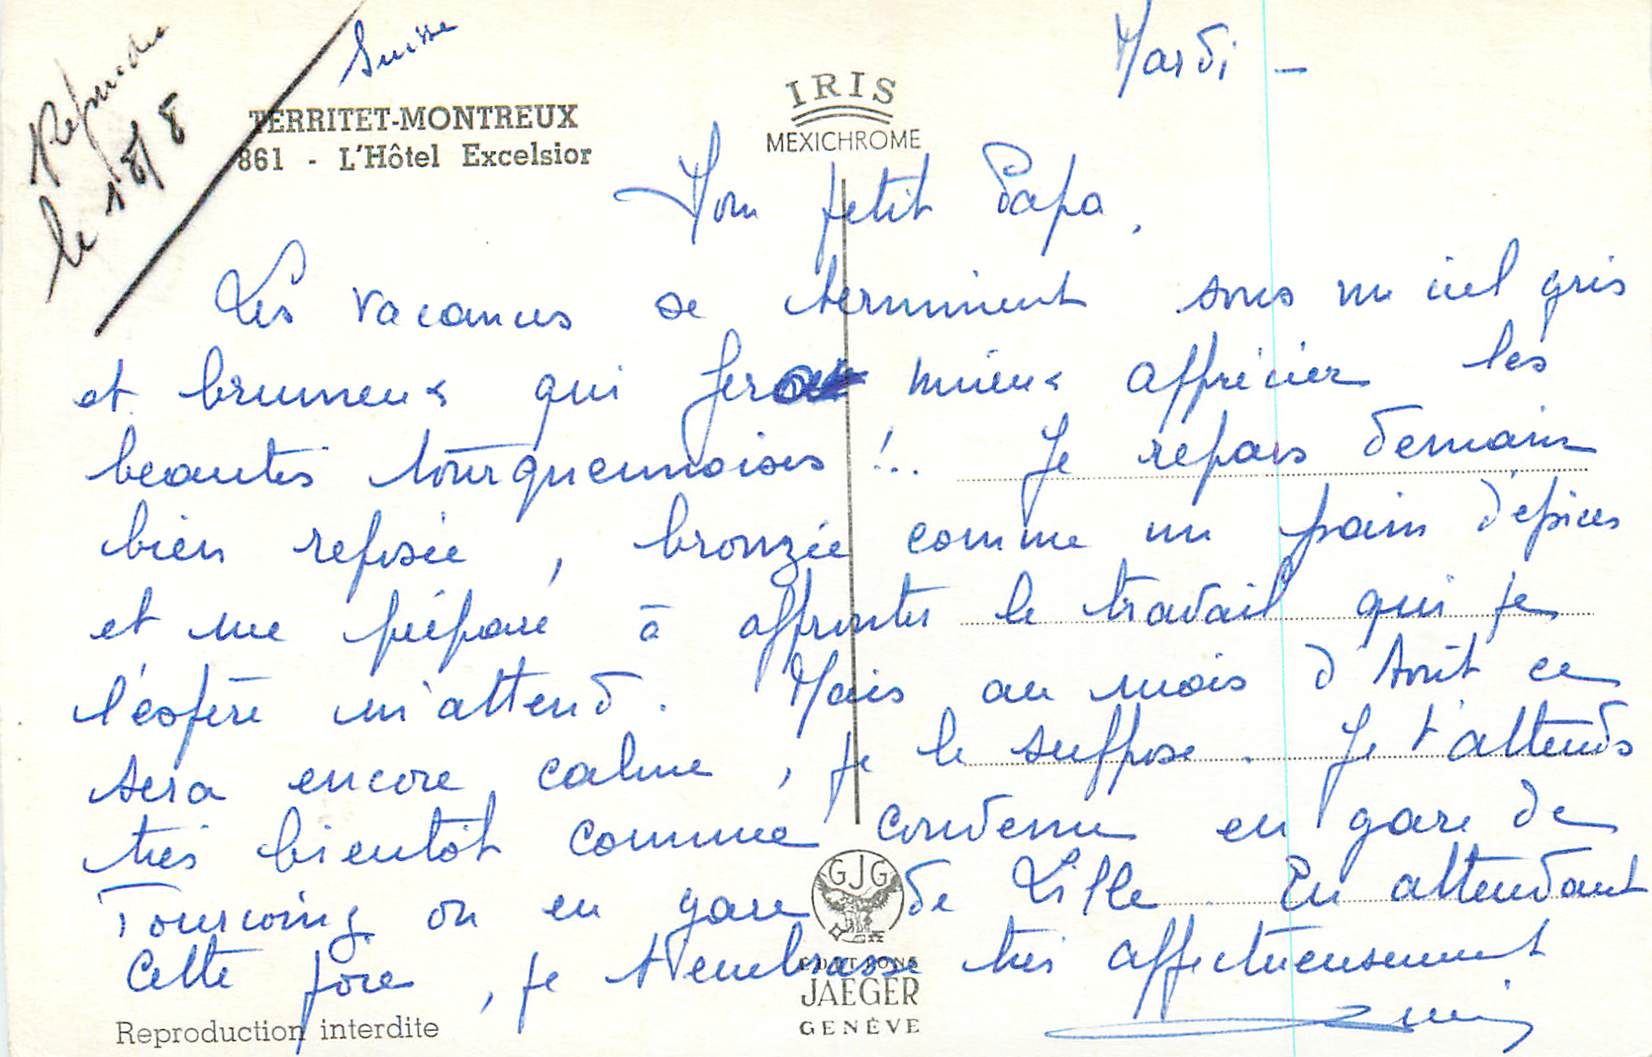 Répondu
le 18/8
Suisse
TERRITET-MONTREUX
861 - L'Hôtel Excelsior
IRIS
MEXICHROME
Mardi -
Mon petit Papa,
Les vacances se terminent sous un ciel gris
et brumeux qui fera mieux apprécier les
beautés tourquennoises !.. Je repars demain
bien reposée, bronzée comme un pain d'épices
et me prépare à affronter le travail qui je
l'espère m'attend. Mais au mois d'Août ce
sera encore calme, je le suppose. Je t'attends
très bientôt comme convenu en gare de
Tourcoing ou en gare de Lille. En attendant
cette joie, je t'embrasse très affectueusement
GJG
EDITIONS
JAEGER
GENÈVE
Reproduction interdite